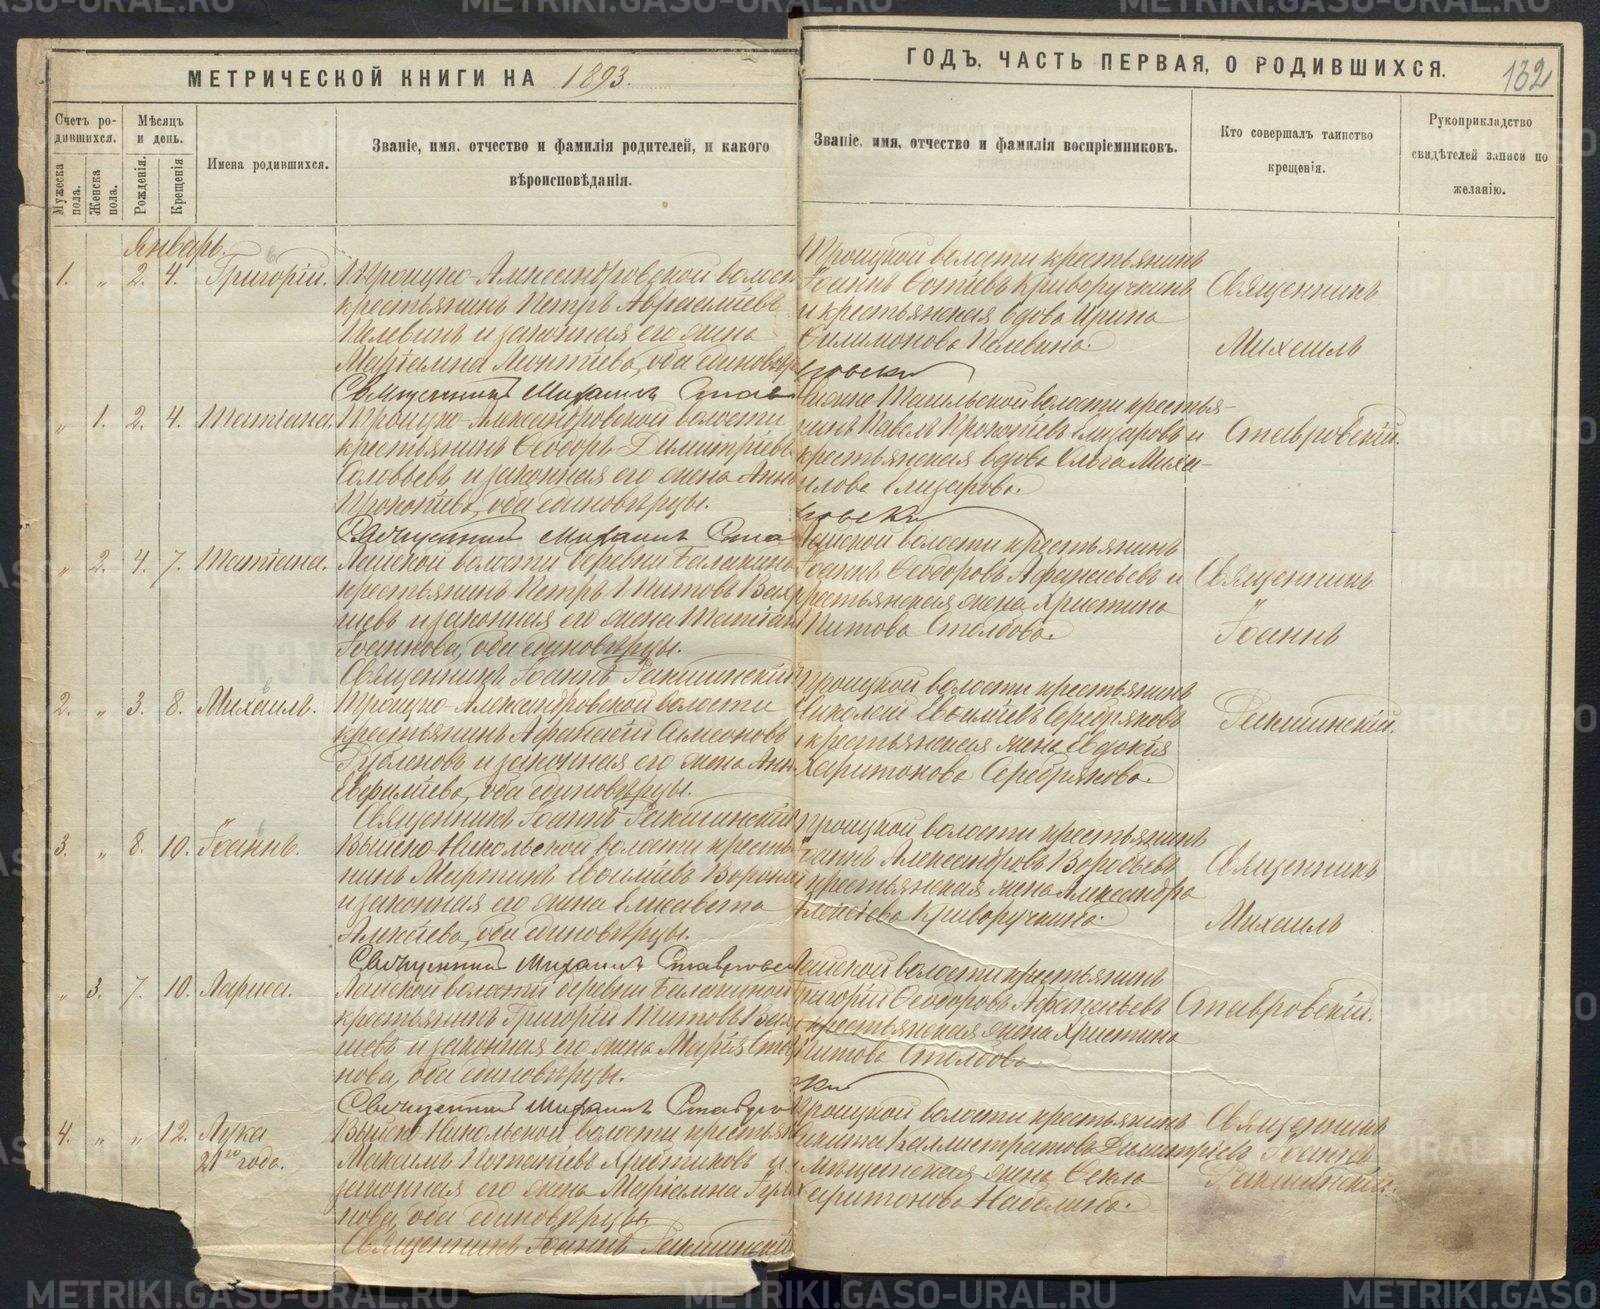 МЕТРИЧЕСКОЙ КНИГИ НА 1893.
Счетъ ро-
дившихся.
Мужеска пола.
Женска пола.
Мѣсяцъ
и день.
Рожденія.
Крещенія.
Имена родившихся.
Званіе, имя, отчество и фамилія родителей, и какого
вѣроисповѣданія.
Январь.
1. „ 2. 4. Григорій.
Троицко-Александровской волости
крестьянинъ Петръ
Пелевинъ и законная его жена
Маріамна Леонтіева, оба единовѣрцы
Священникъ Михаилъ
„ 1. 2. 4. Татіана.
Троицко-Александровской волости
крестьянинъ Ѳеодоръ Димитріевъ
Соловьевъ и законная его жена Анна
Прокопіева, оба единовѣрцы.
Священникъ Михаилъ
„ 2. 4. 7. Татіана.
Лайской волости деревни Балакиной
крестьянинъ Петръ Титовъ
и законная его жена Татіана
Іоаннова, оба единовѣрцы.
Священникъ Іоаннъ
2. „ 3. 8. Михаилъ.
Троицко-Александровской волости
крестьянинъ Аѳанасій Симеоновъ
и законная его жена Анна
Евфиміева, оба единовѣрцы.
Священникъ Іоаннъ
3. „ 8. 10. Іоаннъ.
Выйско-Никольской волости кресть-
нинъ Мартинъ Василіевъ
и законная его жена Елисавета
Алексіева, оба единовѣрцы.
Священникъ Михаилъ
„ 3. 7. 10. Лариса.
Лайской волости деревни Балакиной
крестьянинъ Григорій Титовъ
и законная его жена Марія
нова, оба единовѣрцы.
Священникъ Михаилъ
4. „ „ 12. Лука
21го года.
Выйско-Никольской волости крестьян
Максимъ Потапіевъ и
законная его жена Маріамна
нова, оба единовѣрцы
Священникъ Іоаннъ
ГОДЪ, ЧАСТЬ ПЕРВАЯ, О РОДИВШИХСЯ.
132
Званіе, имя, отчество и фамилія воспріемниковъ.
Кто совершалъ таинство
крещенія.
Рукоприкладство
свидѣтелей записи по
желанію.
Троицкой волости крестьянинъ
Іоаннъ Криворучкинъ
и крестьянская вдова Ирина
Филимонова Пелевина.
Священникъ
Михаилъ
Нижне Тагильской волости крестья-
нинъ Павелъ Прокопіевъ Елизаровъ и
крестьянская вдова Ольга Миха-
илова Елизарова.
Ставровскій.
Лайской волости крестьянинъ
Іоаннъ Ѳеодоровъ Аѳанасьевъ и
крестьянская жена Христина
Титова Столбова.
Священникъ
Іоаннъ
Троицкой волости крестьянинъ
Николай Серебряковъ
крестьянская жена Евдокія
Харитонова Серебрякова.
Троицкой волости крестьянинъ
Іоаннъ Александровъ Воробьевъ
крестьянская жена Александра
Алексіева Криворучкина.
Священникъ
Михаилъ
Лайской волости крестьянинъ
Григорій Ѳеодоровъ Аѳанасьевъ
крестьянская жена Христина
Титова Столбова
Ставровскій.
Троицкой волости крестьянинъ
Никита Каллистратовъ Димитріевъ
мѣщанская жена Ѳекла
Харитонова
Священникъ
Іоаннъ
METRIKI.GASO-URAL.RU